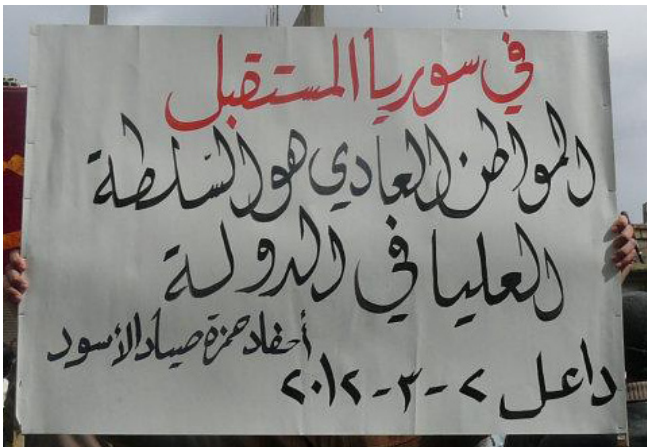 في سوريا المستقبل
المواطن العادي هو السلطة
العليا في الدولة
أحفاد حمزة صياد الأسود
داعل ٢-٣-٢٠١٢